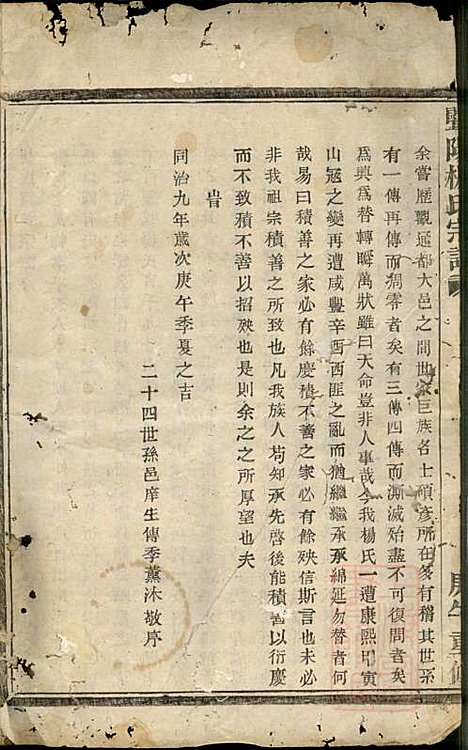 豐陵楊氏宗譜
庚午重修
余嘗歷觀通都大邑之間世家巨族名士碩彥所在多有稽其世系
有一傳再傳而凋零者矣有三傳四傳而澌滅殆盡不可復問者矣
爲興爲替轉瞬萬狀雖曰天命豈非人事哉今我楊氏一遭康熙甲寅
山寇之變再遭咸豐辛酉西匪之亂而猶繼繼承承綿延勿替者何
哉易曰積善之家必有餘慶積不善之家必有餘殃信斯言也未必
非我祖宗積善之所致也凡我族人苟知承先啓後能積善以衍慶
而不致積不善以招殃也是則余之之所厚望也夫
旹
同治九年歲次庚午季夏之吉
二十四世孫邑庠生傳季薰沐敬序